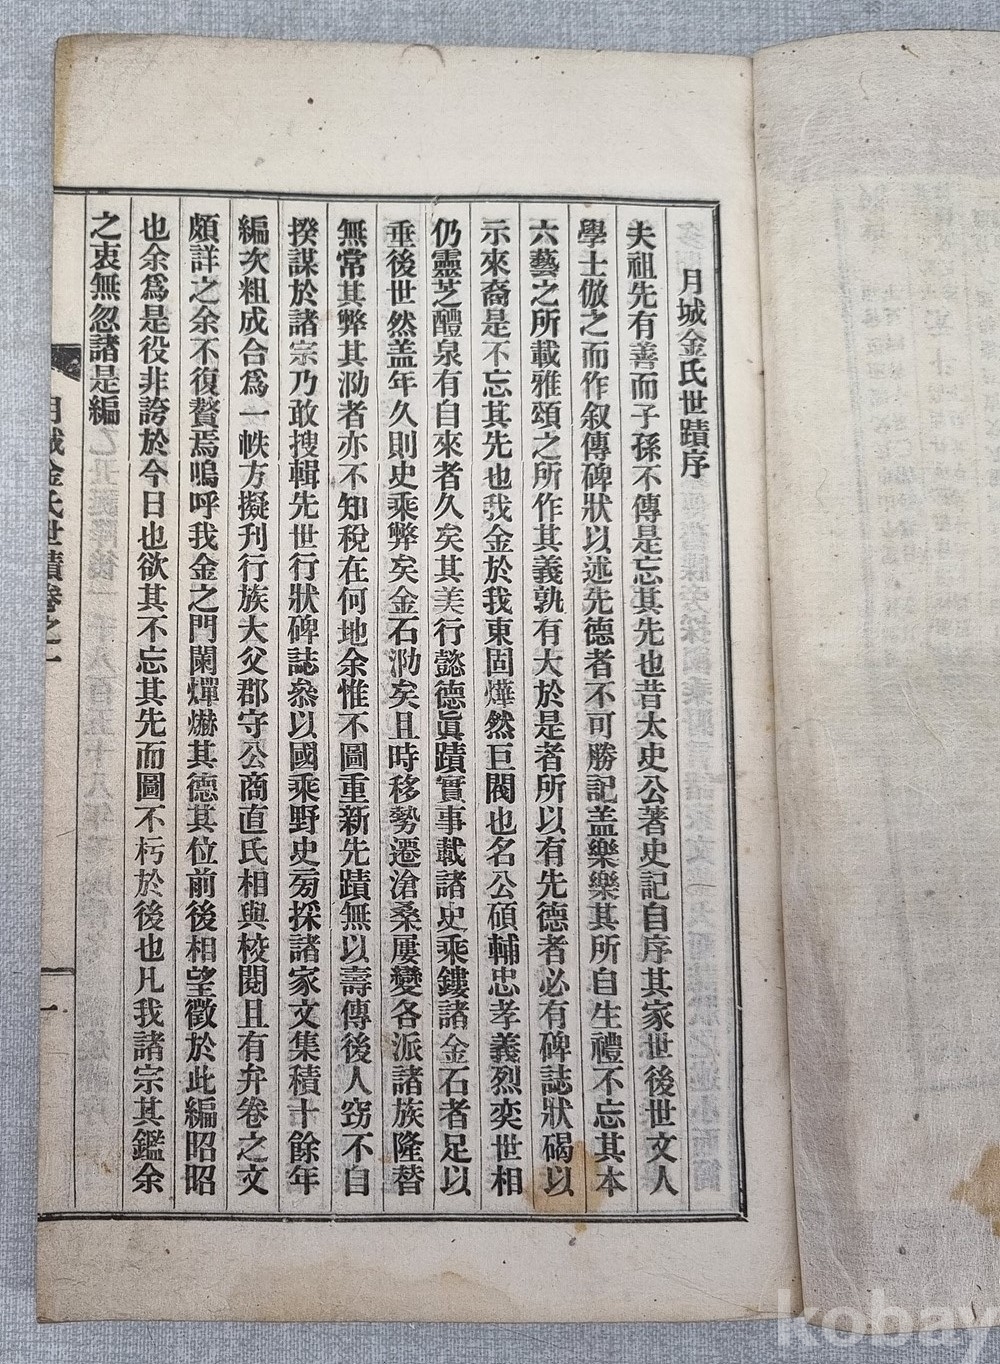 月城金氏世蹟序
夫祖先有善而子孫不傳是忘其先也昔太史公著史記自序其家世後世文人
學士倣之而作叙傳碑狀以述先德者不可勝記盖樂樂其所自生禮不忘其本
六藝之所載雅頌之所作其義孰有大於是者所以有先德者必有碑誌狀碣以
示來裔是不忘其先也我金於我東固燁然巨閥也名公碩輔忠孝義烈奕世相
仍靈芝醴泉有自來者久矣其美行懿德眞蹟實事載諸史乘鏤諸金石者足以
垂後世然盖年久則史乘弊矣金石泐矣且時移勢遷滄桑屢變各派諸族隆替
無常其弊其泐者亦不知稅在何地余惟不圖重新先蹟無以壽傳後人窃不自
揆謀於諸宗乃敢搜輯先世行狀碑誌叅以國乘野史旁採諸家文集積十餘年
編次粗成合爲一帙方擬刊行族大父郡守公商直氏相與校閱且有弁卷之文
頗詳之余不復贅焉嗚呼我金之門闌燀爀其德其位前後相望徵於此編昭昭
也余爲是役非誇於今日也欲其不忘其先而圖不朽於後也凡我諸宗其鑑余
之衷無忽諸是編
月城金氏世蹟卷之一
一
kobay